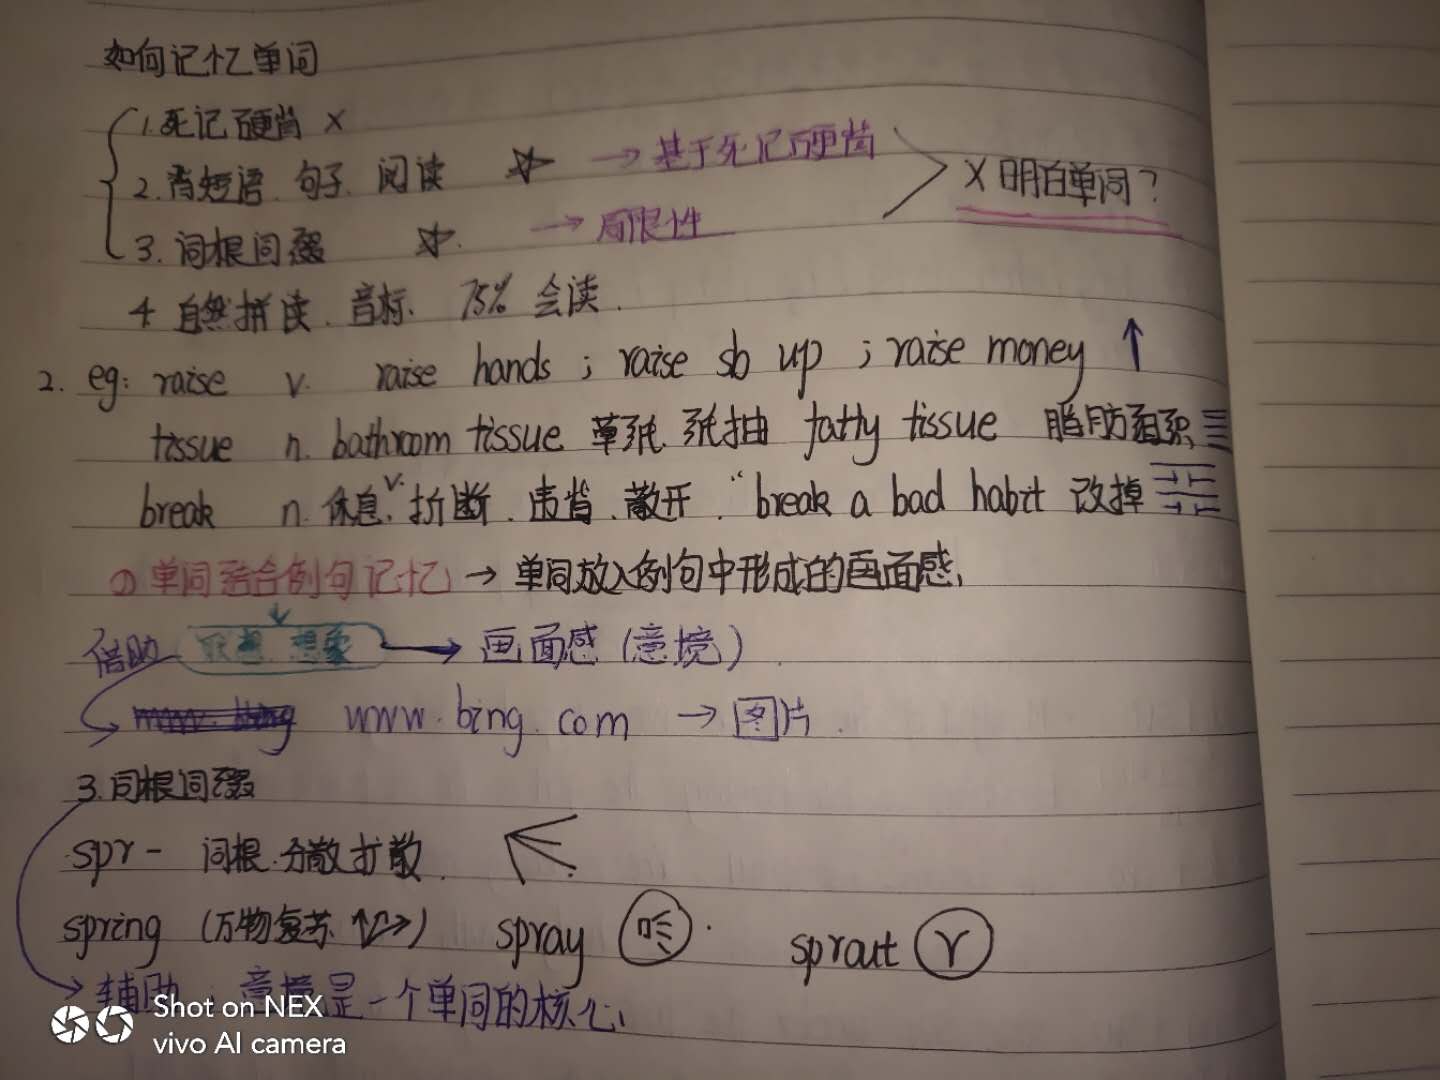 如何记忆单词
1.死记硬背 ×
2.背短语.句子.阅读 ☆ → 基于死记硬背
× 明白单词?
3.词根词缀 ☆ → 局限性
4 自然拼读.音标. 75% 会读.
2. eg: raise v. raise hands ; raise sb up ; raise money ↑
tissue n. bathroom tissue 草纸.纸抽 fatty tissue 脂肪组织
break n.休息.v.折断.违背.散开. "break a bad habit 改掉
① 单词结合例句记忆 → 单词放入例句中形成的画面感.
借助 联想.想象 → 画面感 (意境)
www.bing.com → 图片.
3.词根词缀
spr- 词根.分散扩散.
spring (万物复苏.↑↗→) spray sprout
辅助. 意境是一个单词的核心.
Shot on NEX
vivo AI camera